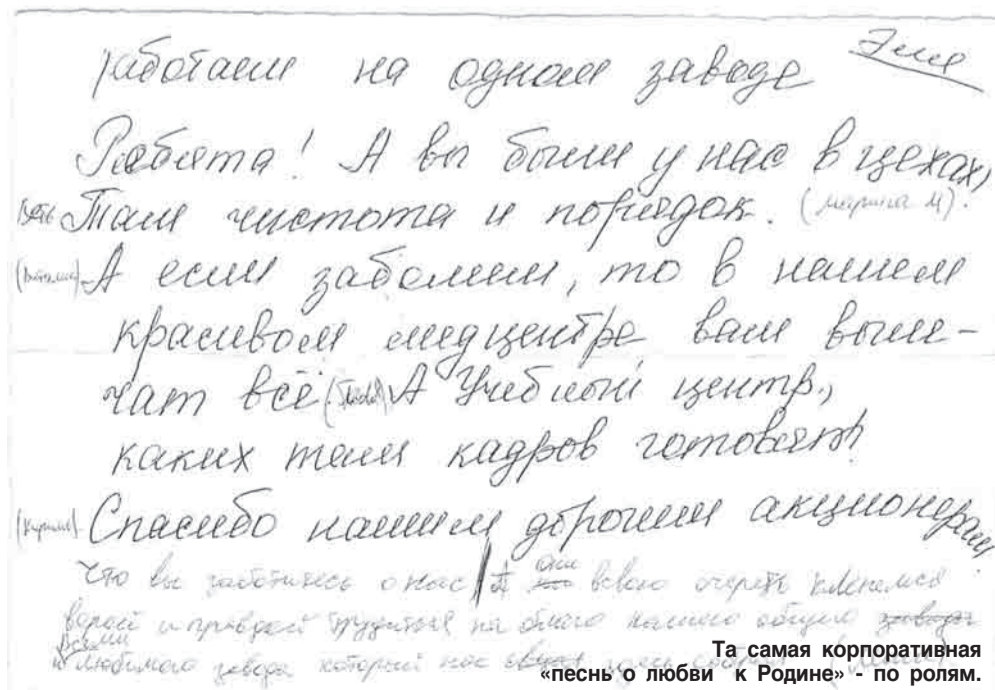 работаем на одном заводе
Ребята! А вы были у нас в цехах,
Там чистота и порядок. (Марина М).
А если заболеем, то в нашем
красивом медцентре вам выле-
чат всё А Учебный центр,
каких там кадров готовят!
(Кирилл) Спасибо нашим дорогим акционерам
что вы заботитесь о нас А в свою очередь клянемся
верой и правдой трудиться на благо нашего общего
и всеми любимого завода который нас здесь
Та самая корпоративная
«песнь о любви к Родине» - по ролям.